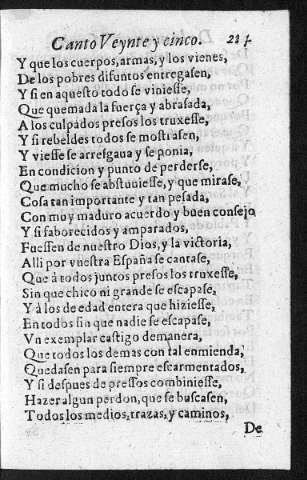 Canto Veynte y cinco. 22
Y que los cuerpos, armas, y los vienes,
De los pobres difuntos entregasen,
Y si en aquesto todo se viniesse,
Que quemada la fuerça y abrasada,
A los culpados presos los truxesse,
Y si rebeldes todos se mostrasen,
Y viesse se arresgaua y se ponia,
En condicion y punto de perderse,
Que mucho se abstuuiesse, y que mirase,
Cosa tan importante y tan pesada,
Con muy maduro acuerdo y buen consejo
Y si faborecidos y amparados,
Fuessen de nuestro Dios, y la victoria,
Alli por vuestra España se cantase,
Que à todos juntos presos los truxesse,
Sin que chico ni grande se escapase,
Y à los de edad entera que hiziesse,
En todos sin que nadie se escapase,
Vn exemplar castigo de manera,
Que todos los demas con tal enmienda,
Quedasen para siempre escarmentados,
Y si despues de pressos combiniesse,
Hazer algun perdon, que se buscasen,
Todos los medios, trazas, y caminos,
De